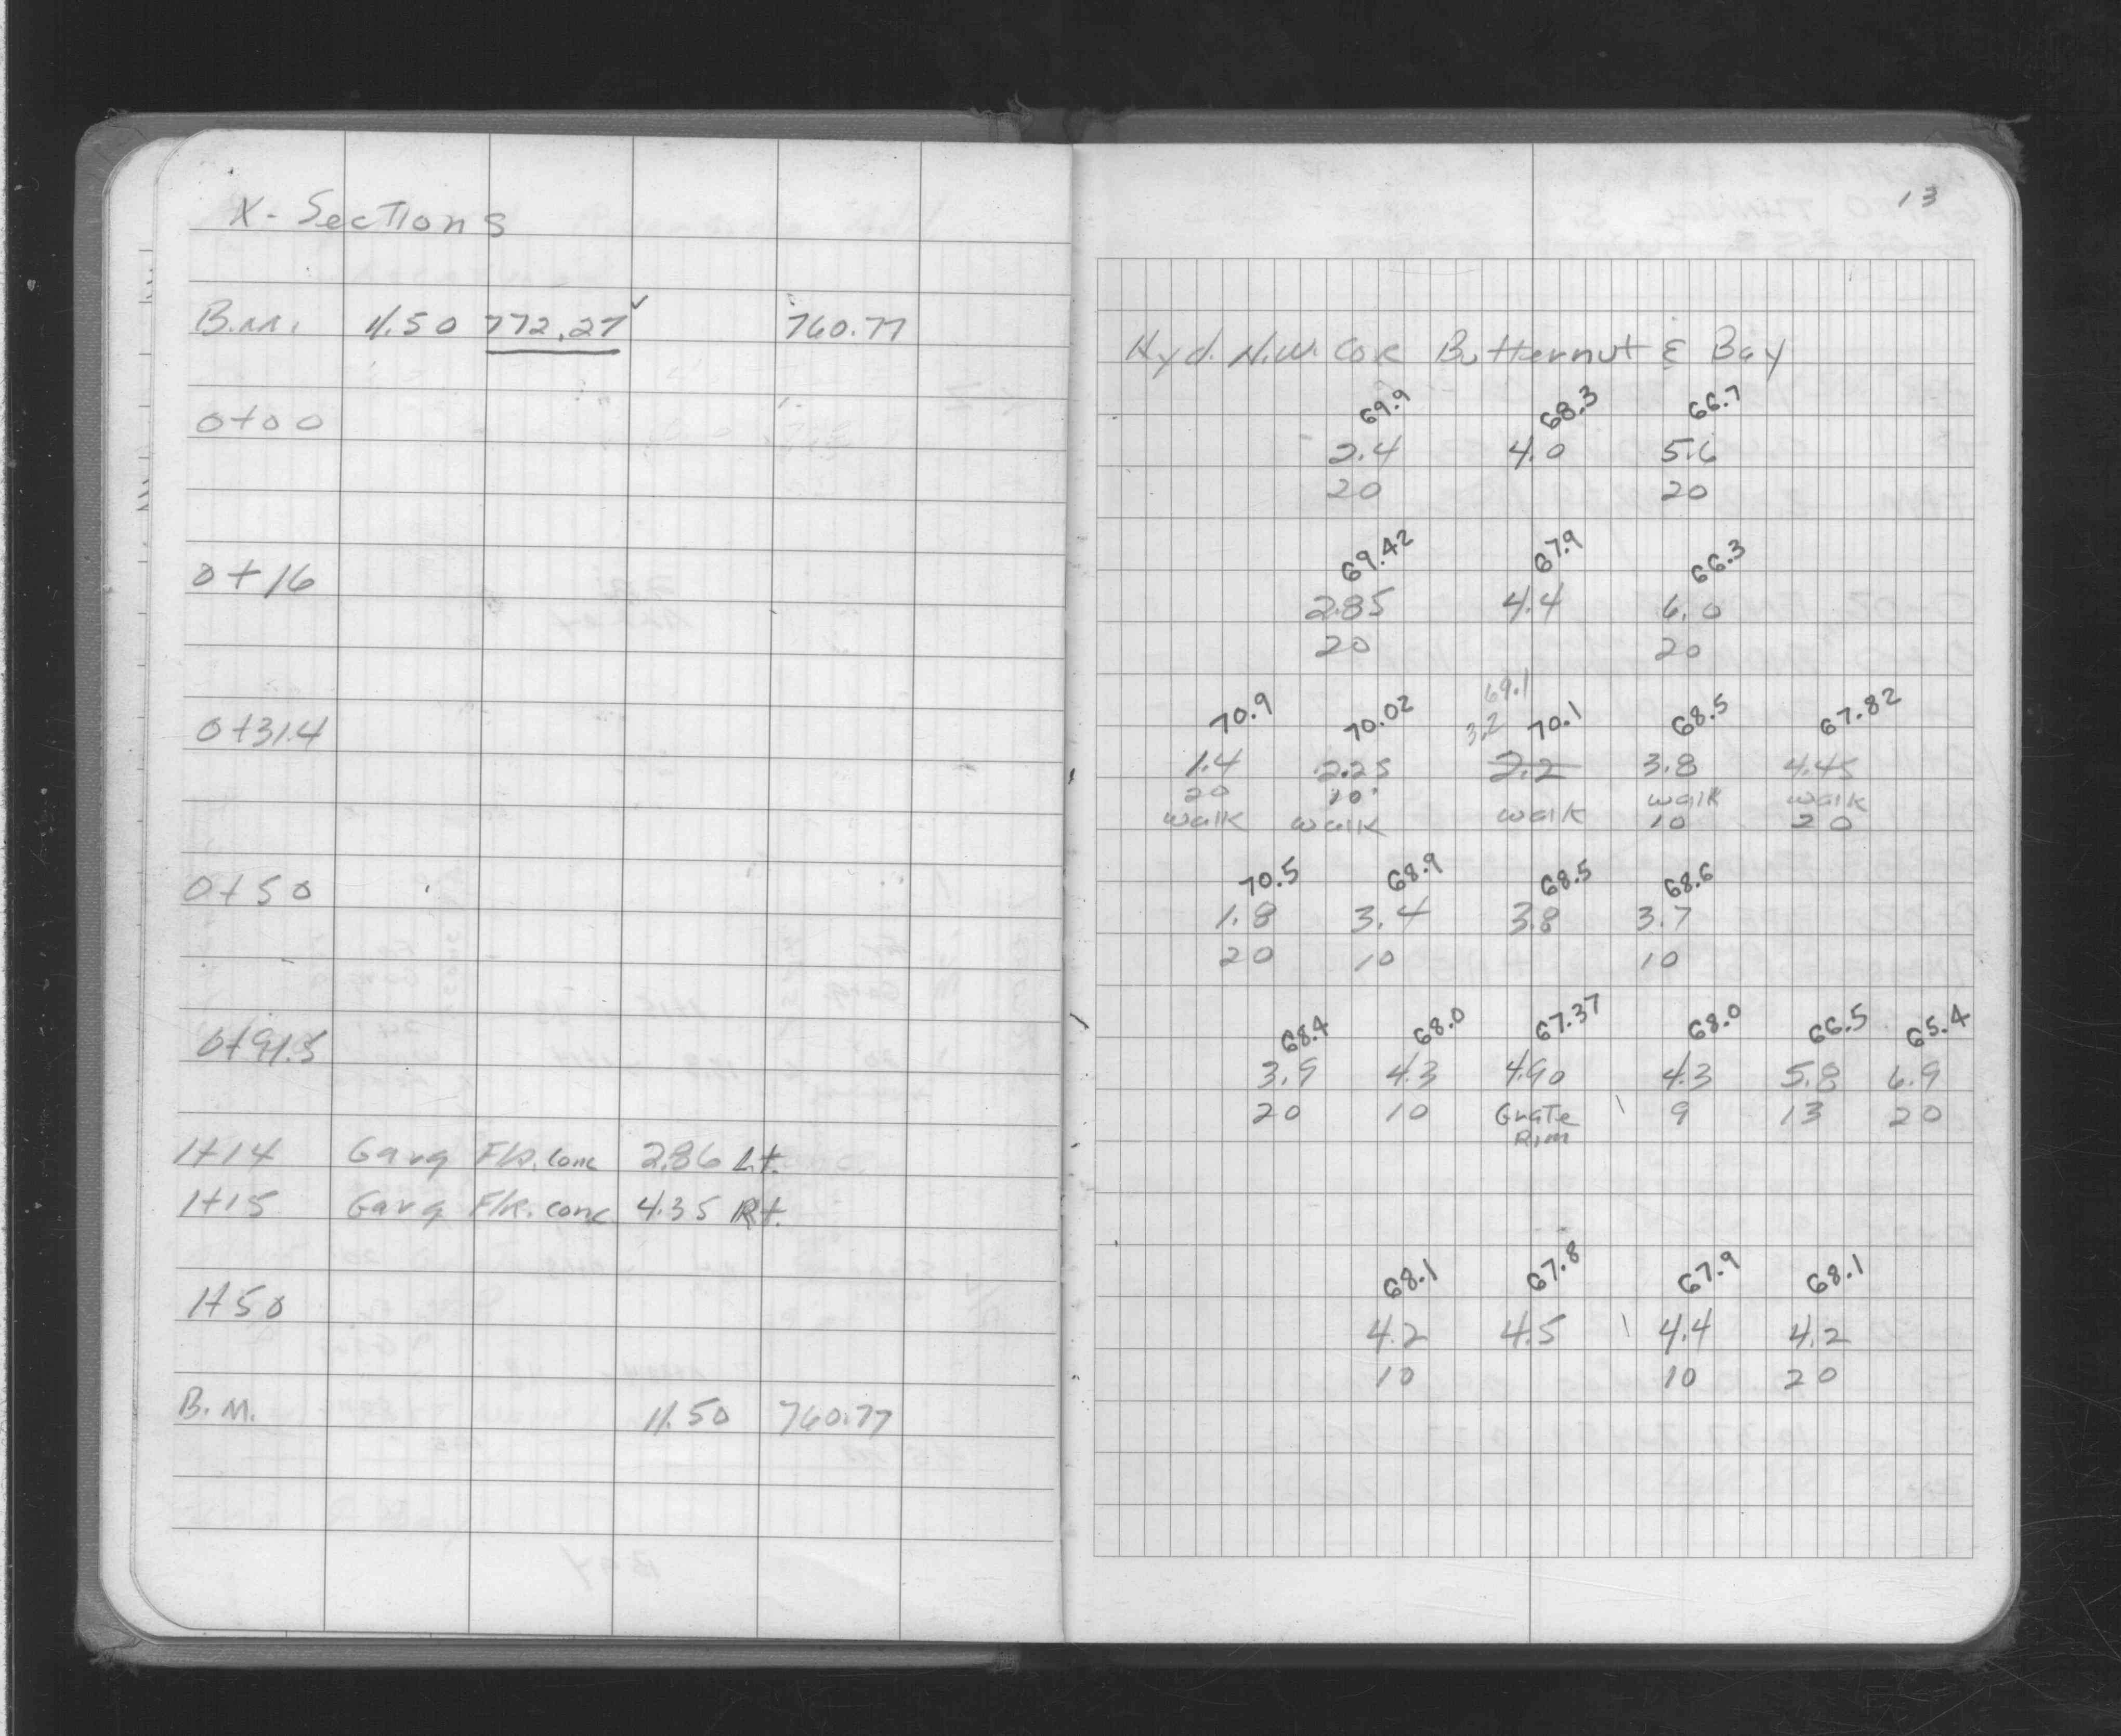 X-Sections
B.M. 11.50 772.27✓ 760.77
0+00
0+16
0+31.4
0+50
0+91.5
1+14 Garg Flr. conc 2.86 Lt.
1+15 Garg Flr. conc 4.35 Rt.
1+50
B.M. 11.50 760.77
13
Hyd. N.W. Cor Butternut & Bay
69.9 68.3 66.7
2.4 4.0 5.6
20 20
69.42 67.9 66.3
2.85 4.4 6.0
20 20
69.1
70.9 70.02 3.2 70.1 68.5 67.82
1.4 2.25 2.2 3.8 4.45
20 10 walk walk
walk walk walk 10 20
70.5 68.9 68.5 68.6
1.8 3.4 3.8 3.7
20 10 10
68.4 68.0 67.37 68.0 66.5 65.4
3.9 4.3 4.90 4.3 5.8 6.9
20 10 Grate 9 13 20
Rim
68.1 67.8 67.9 68.1
4.2 4.5 4.4 4.2
10 10 20